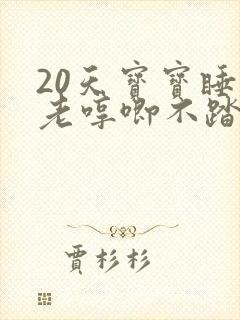 20天寳寳睡
老哼唧不踏
賈杉杉